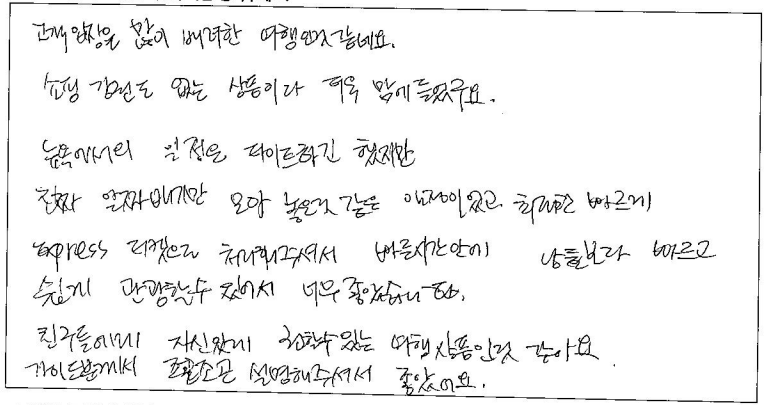 고객입장을 많이 배려한 여행인것 같네요.
쇼핑 강권도 없는 상품이라 더욱 맘에 들었구요.
뉴욕에서의 일정은 타이트하긴 했지만
진짜 알짜배기만 모아 놓은것 같은 일정이었고 최대한 빠르게
express 티켓으로 처리해주셔서 빠른시간안에 남들보다 빠르고
쉽게 관광할수 있어서 너무 좋았습니다.
친구들에게 자신있게 권할수있는 여행상품인것 같아요
가이드분께서 조곤조곤 설명해주셔서 좋았어요.